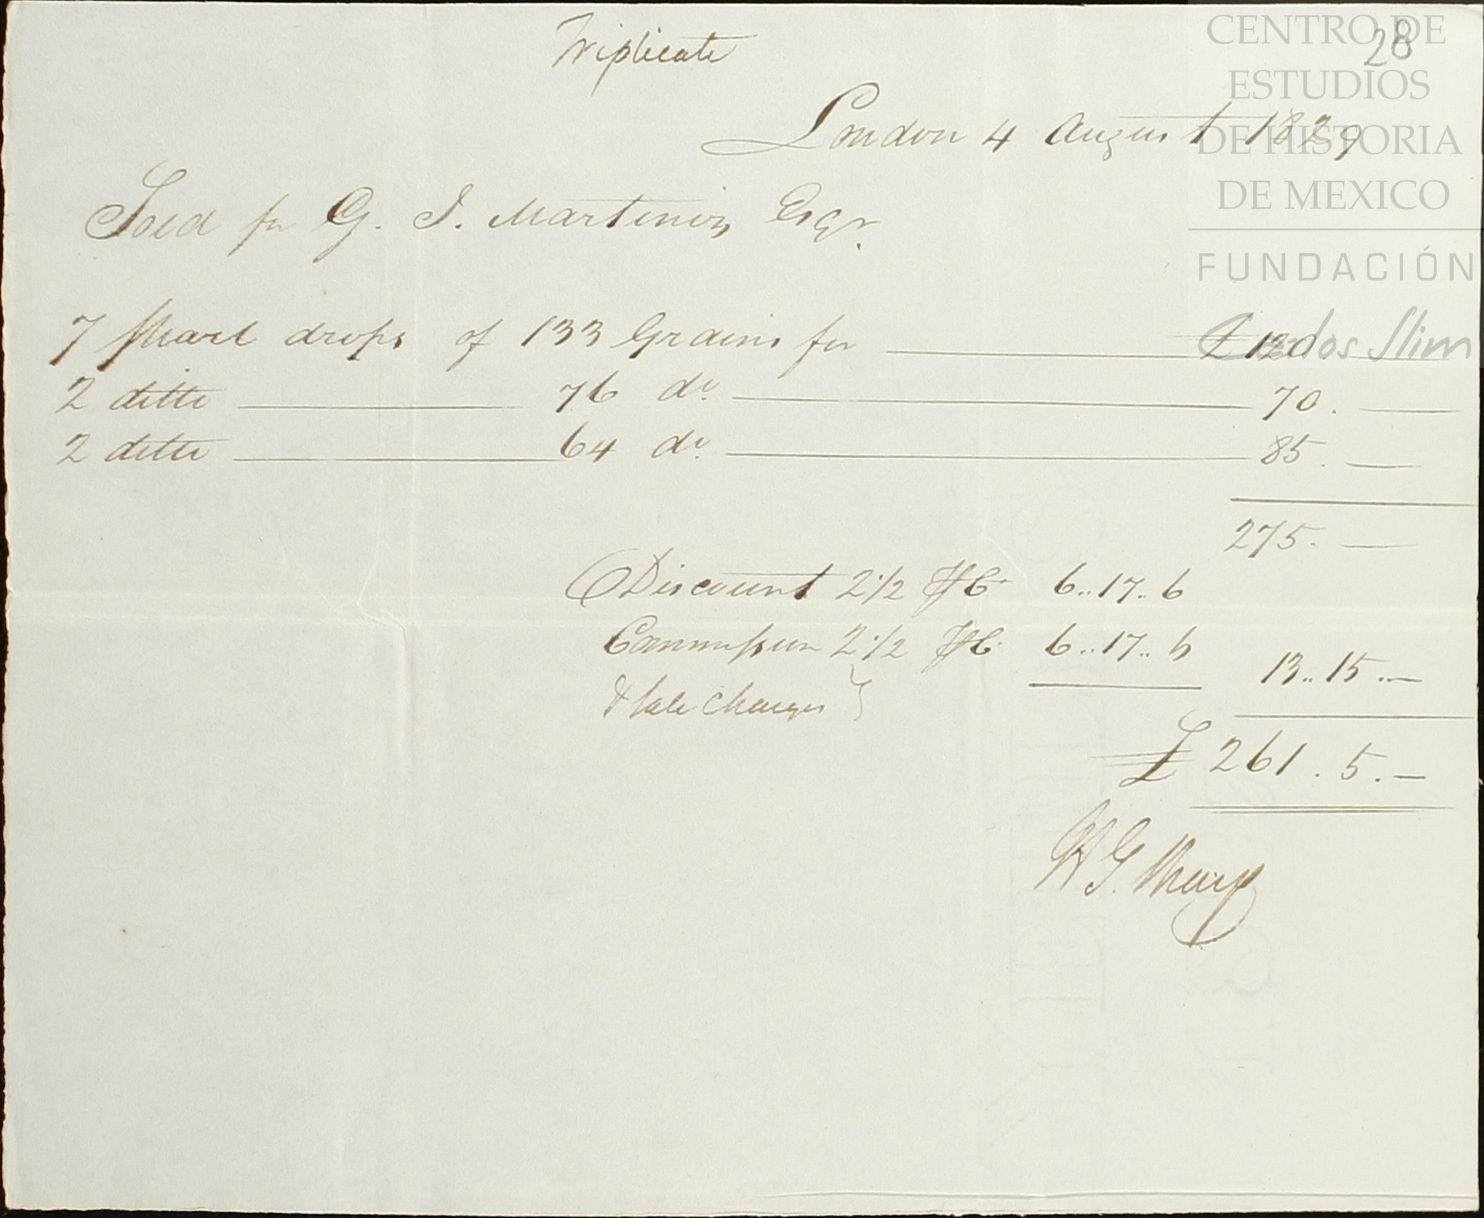 Triplicate
28
London 4 August 1829
Sold for G. J. Martinez Esqr.
7 Pearl drops of 133 Grains for £ 120
2 ditto 76 do. 70. —
2 ditto 64 do. 85. —
275. —
Discount 2 1/2 P C. 6..17..6
Commission 2 1/2 P C. 6..17..6 13..15..—
& sale charges }
£ 261.5.—
G.
CENTRO DE
ESTUDIOS
DE HISTORIA
DE MEXICO
FUNDACIÓN
Carlos Slim